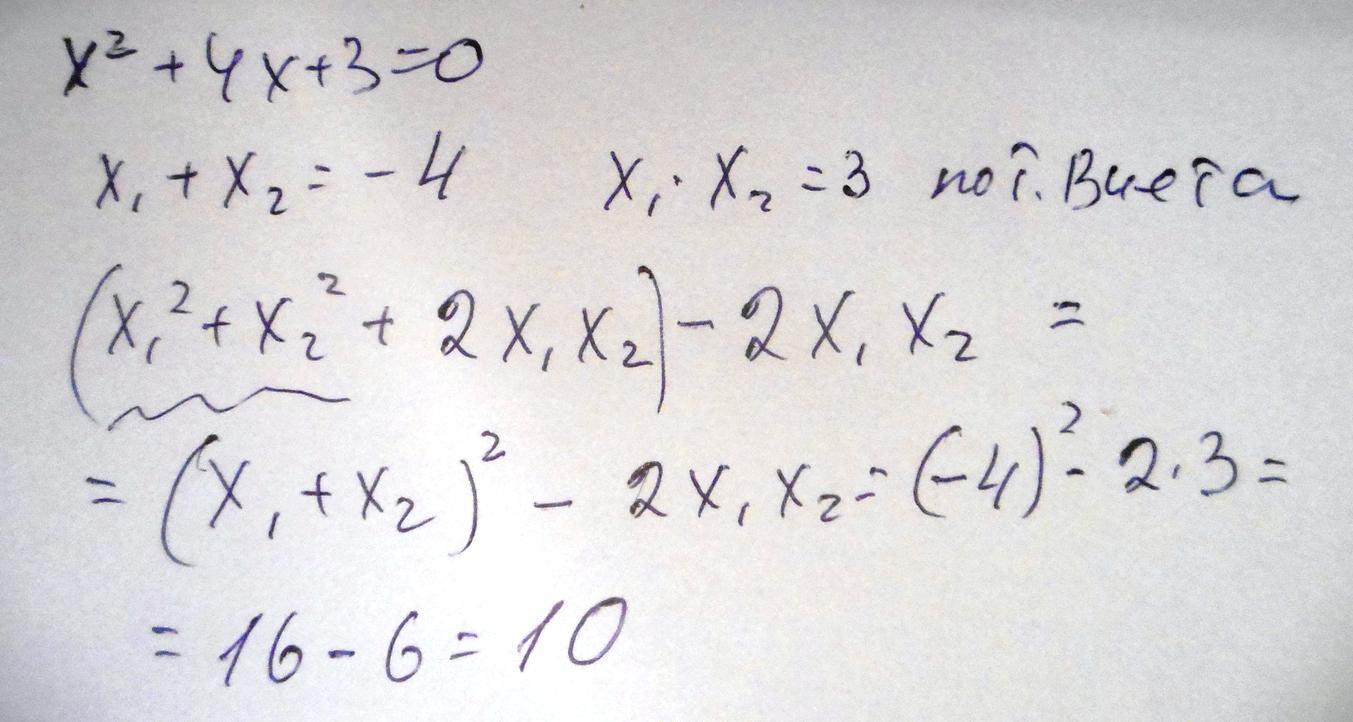 x² + 4x + 3 = 0
x₁ + x₂ = - 4 x₁ · x₂ = 3 по т. Виета
(x₁² + x₂² + 2x₁x₂) - 2x₁x₂ =
= (x₁ + x₂)² - 2x₁x₂ = (-4)² - 2·3 =
= 16 - 6 = 10